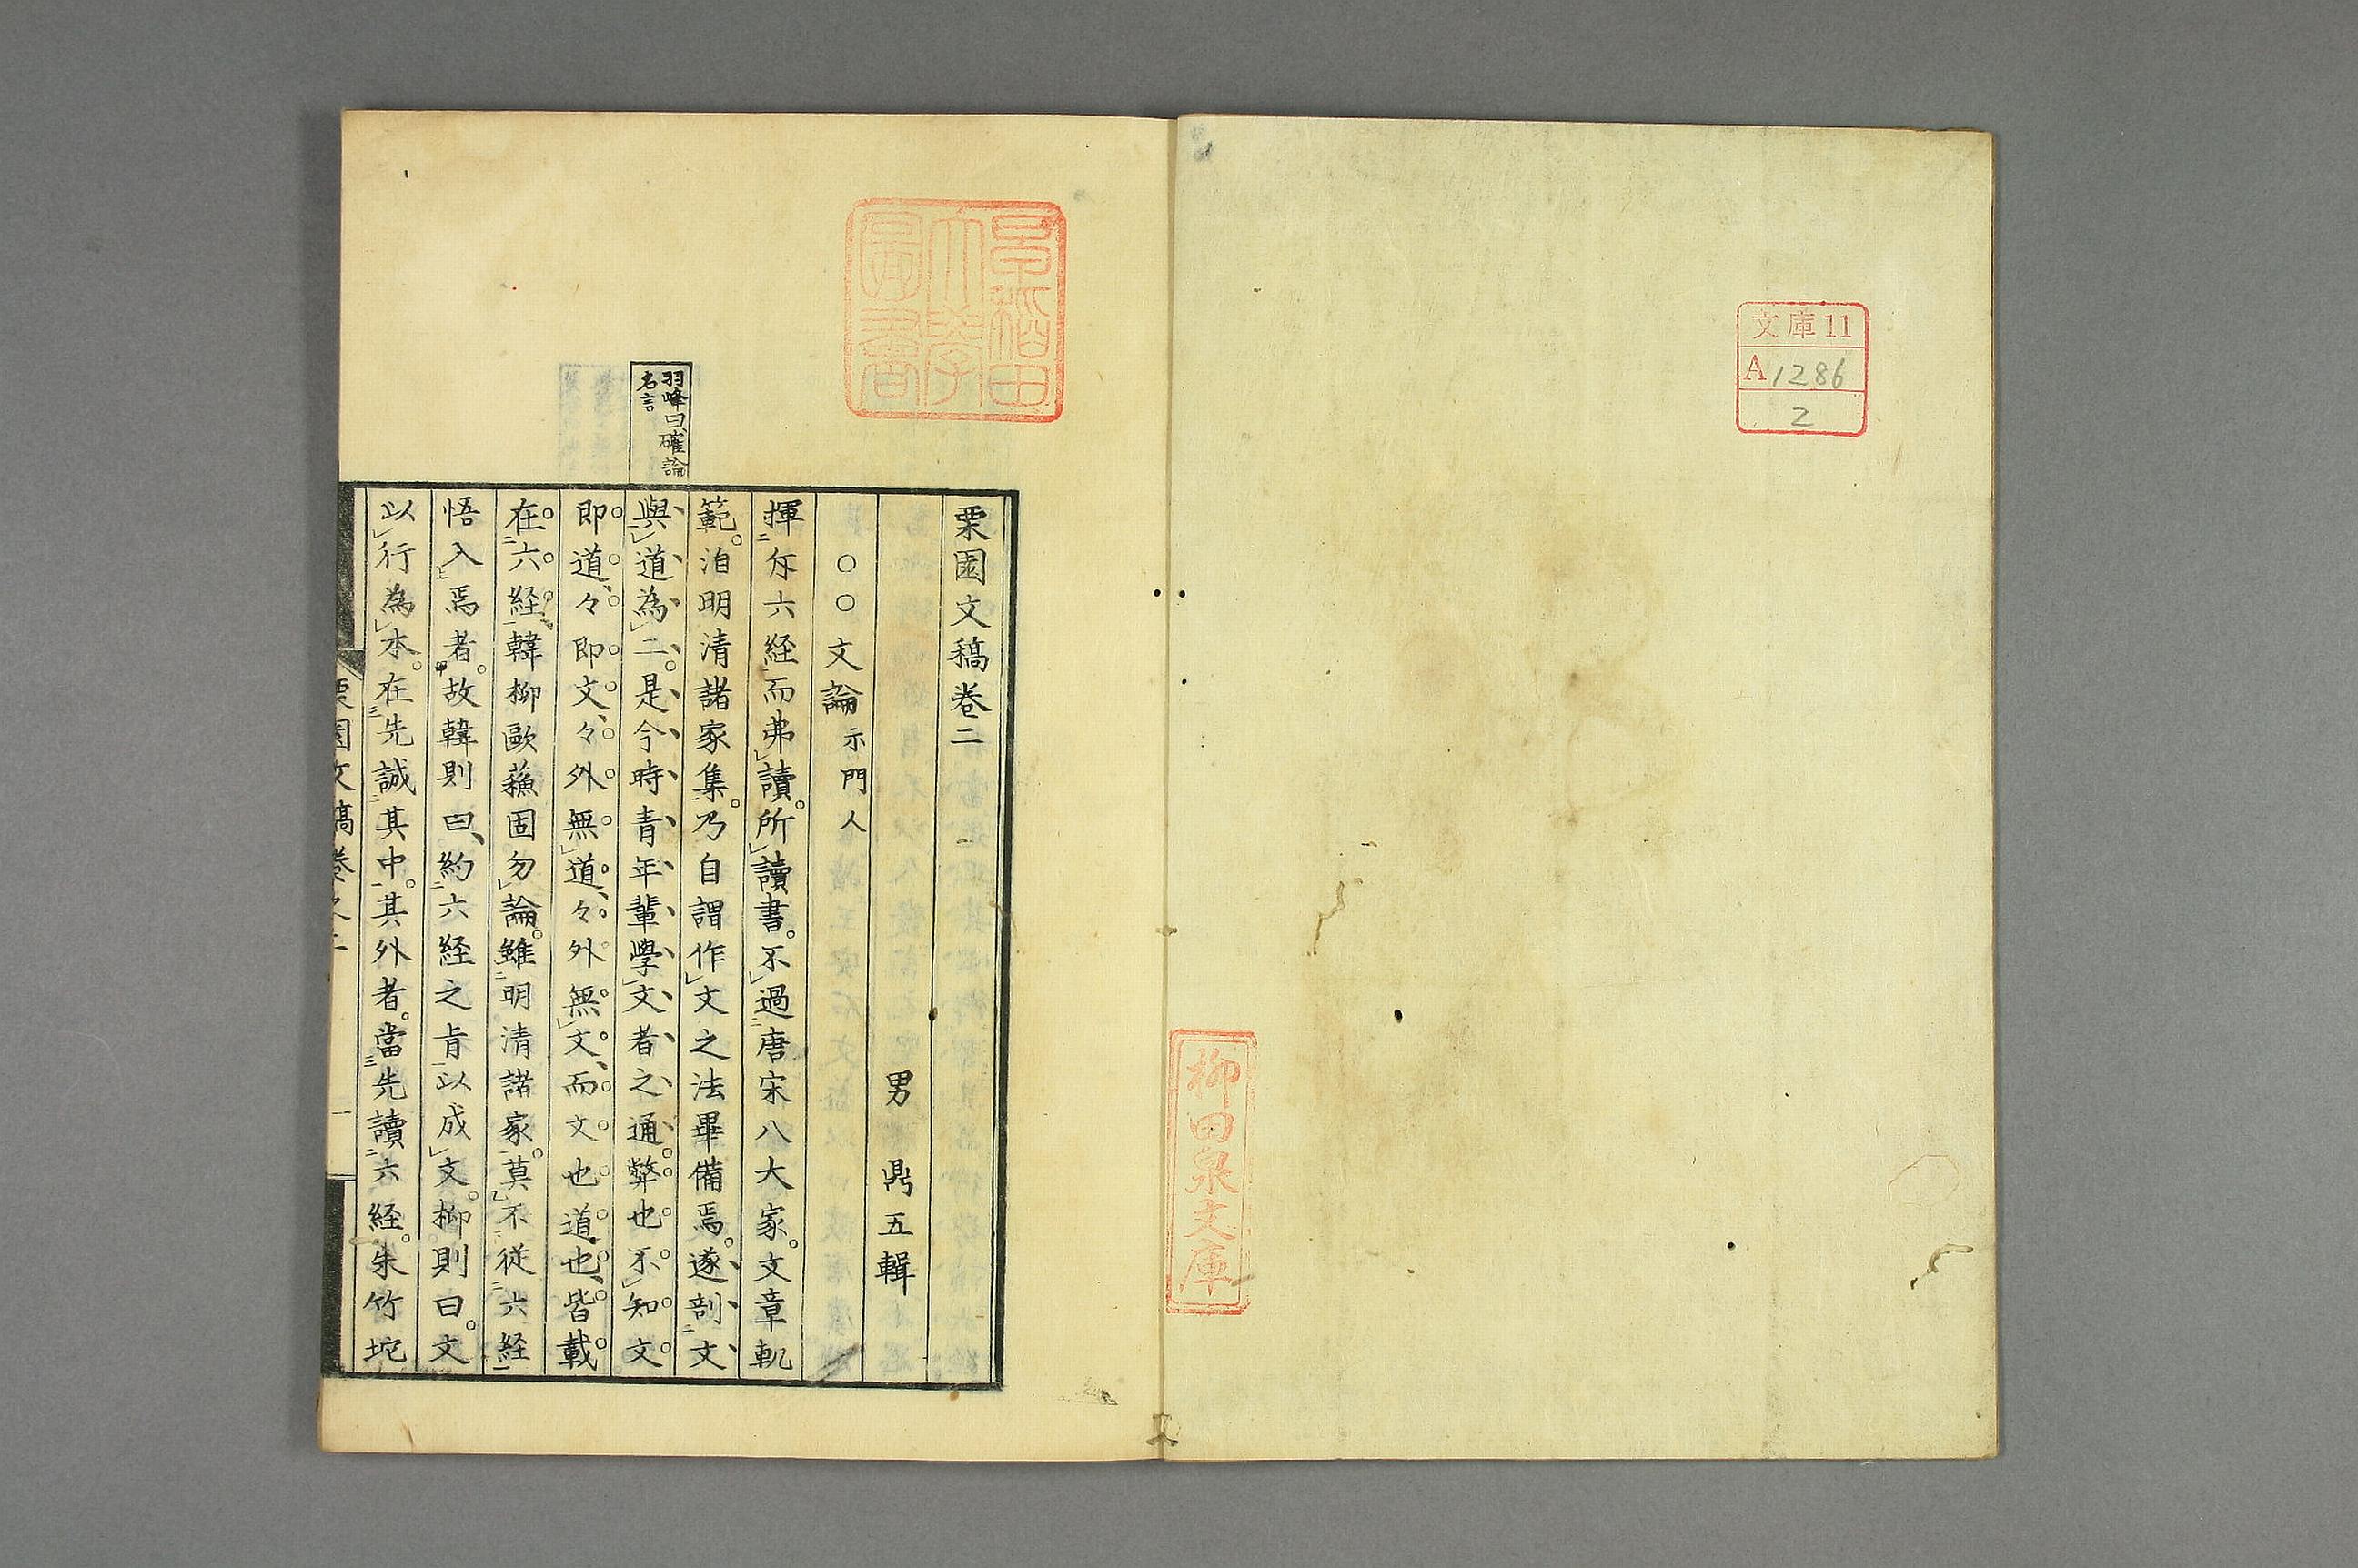 文庫11
A1286
2
柳田泉文庫
早稲田
大學
圖書
羽峰曰、確論
名言
栗園文稿卷二
男　鼎五輯
○○文論示門人
揮斥六経而弗讀。所讀書。不過唐宋八大家。文章軌
範。洎明清諸家集。乃自謂作文之法畢備焉。遂剖文
與道為二。是今時青年輩學文者之通弊也。不知文
即道、々即文、々外無道、々外無文、而文也道也、皆載
在六経、韓柳歐蘓固勿論。雖明清諸家。莫不従六経
悟入焉者。故韓則曰、約六経之旨以成文。柳則曰。文
以行為本。在先誠其中。其外者。當先讀六経。朱竹垞
栗園文稿卷之二　一